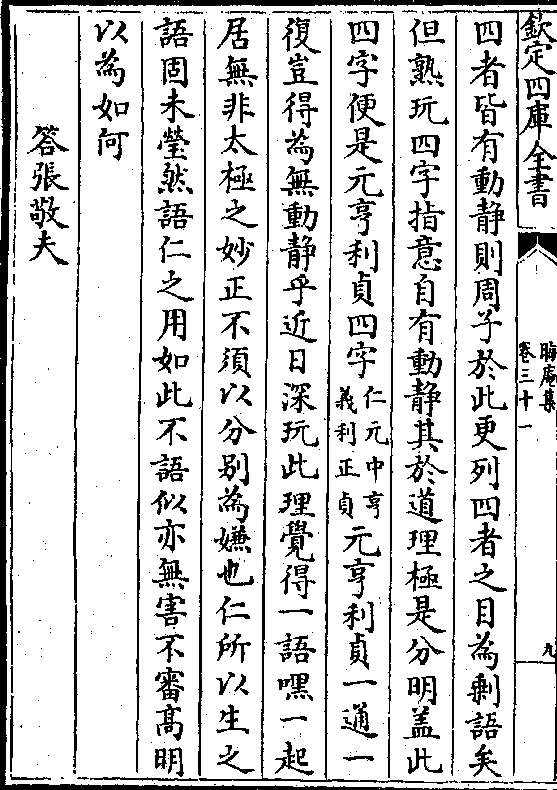 欽定四庫全書
晦庵集
卷三十一
九
四者皆有動静則周子於此更列四者之目為剰語矣
但熟玩四字指意自有動静其於道理極是分明盖此
四字便是元亨利貞四字仁元中亨義利正貞元亨利貞一通一
復豈得為無動静乎近日深玩此理覺得一語嘿一起
居無非太極之妙正不須以分别為嫌也仁所以生之
語固未瑩然語仁之用如此下語似亦無害不審髙明
以為如何
答張敬夫